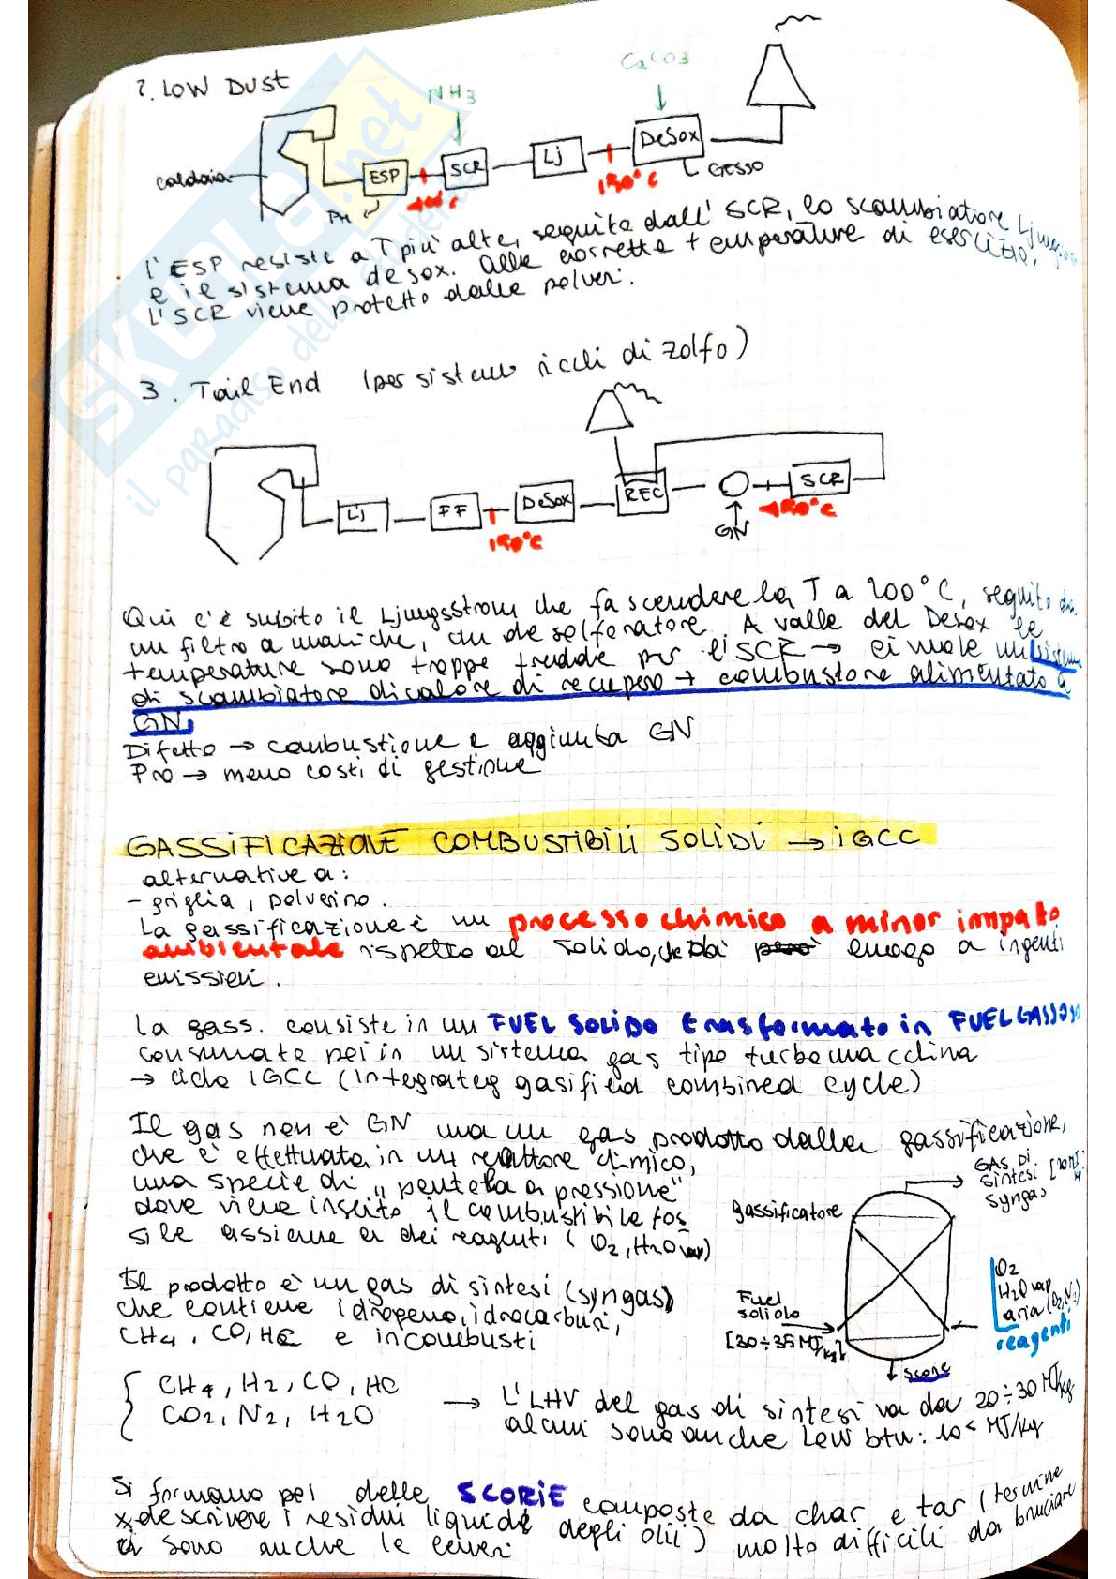 2. LOW DUST
CaCO3
NH3
caldaia
ESP
SCR
Lj
DeSox
GESSO
190°C
PM
L'ESP resiste a T più alte, seguita dall'SCR, lo scambiatore
e il sistema desox. Alle corrette temperature di esercizio,
L'SCR viene protetto dalle polveri.
3. Tail End (per sistemi ricchi di zolfo)
Lj
FF
DeSox
REC
SCR
190°C
GN
Qui c'è subito il Ljungsstrom che fa scendere la T a 200°C, seguito da
un filtro a maniche, un desolforatore. A valle del Desox le
temperature sono troppe fredde per l'SCR → ci vuole un sistema
di scambiatore di calore di recupero + combustore alimentato a
GN.
Difetto → combustione e aggiunta GN
Pro → meno costi di gestione
GASSIFICAZIONE COMBUSTIBILI SOLIDI → iGCC
alternative a:
- griglia, polverino.
La gassificazione è un processo chimico a minor impatto
ambientale rispetto al solido, che dà luogo a ingenti
emissioni.
La gass. consiste in un FUEL SOLIDO trasformato in FUEL GASSOSO
consumato poi in un sistema gas tipo turbomacchina
→ ciclo IGCC (integrateg gasified combined cycle)
Il gas non è GN ma un gas prodotto dalla gassificazione,
che è effettuata in un reattore chimico,
una specie di "pentola a pressione"
dove viene inserito il combustibile fos
sile assieme a dei reagenti (O2, H2O vap)
GAS DI
sintesi
syngas
gassificatore
Fuel
solido
[30÷35 MJ/kg]
O2
H2O vap
aria (O2, N2)
reagenti
scorie
Il prodotto è un gas di sintesi (syngas)
che contiene idrogeno, idrocarburi,
CH4, CO, HC e incombusti
CH4, H2, CO, HC
CO2, N2, H2O
→ L'LHV del gas di sintesi va da 20÷30 MJ/kg
alcuni sono anche Low btu: 10< MJ/kg
Si formano poi delle SCORIE composte da char e tar (termine
x descrivere i residui liquidi degli olii) molto difficili da bruciare
ci sono anche le ceneri
SKUOLA.net
il paradiso dello studente